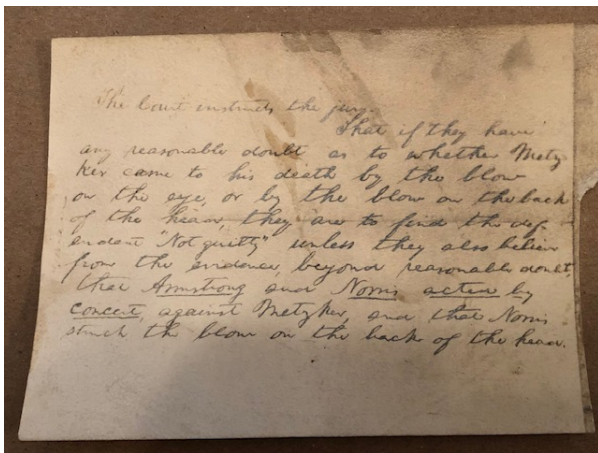 The Court instructs the jury.
That if they have
any reasonable doubt as to whether Metz
ker came to his death by the blow
on the eye, or by the blow on the back
of the head, they are to find the def
endant "Not guilty" unless they also believe
from the evidence, beyond reasonable doubt,
that Armstrong and Norris acted by
concert, against Metzker, and that Norris
struck the blow on the back of the head.